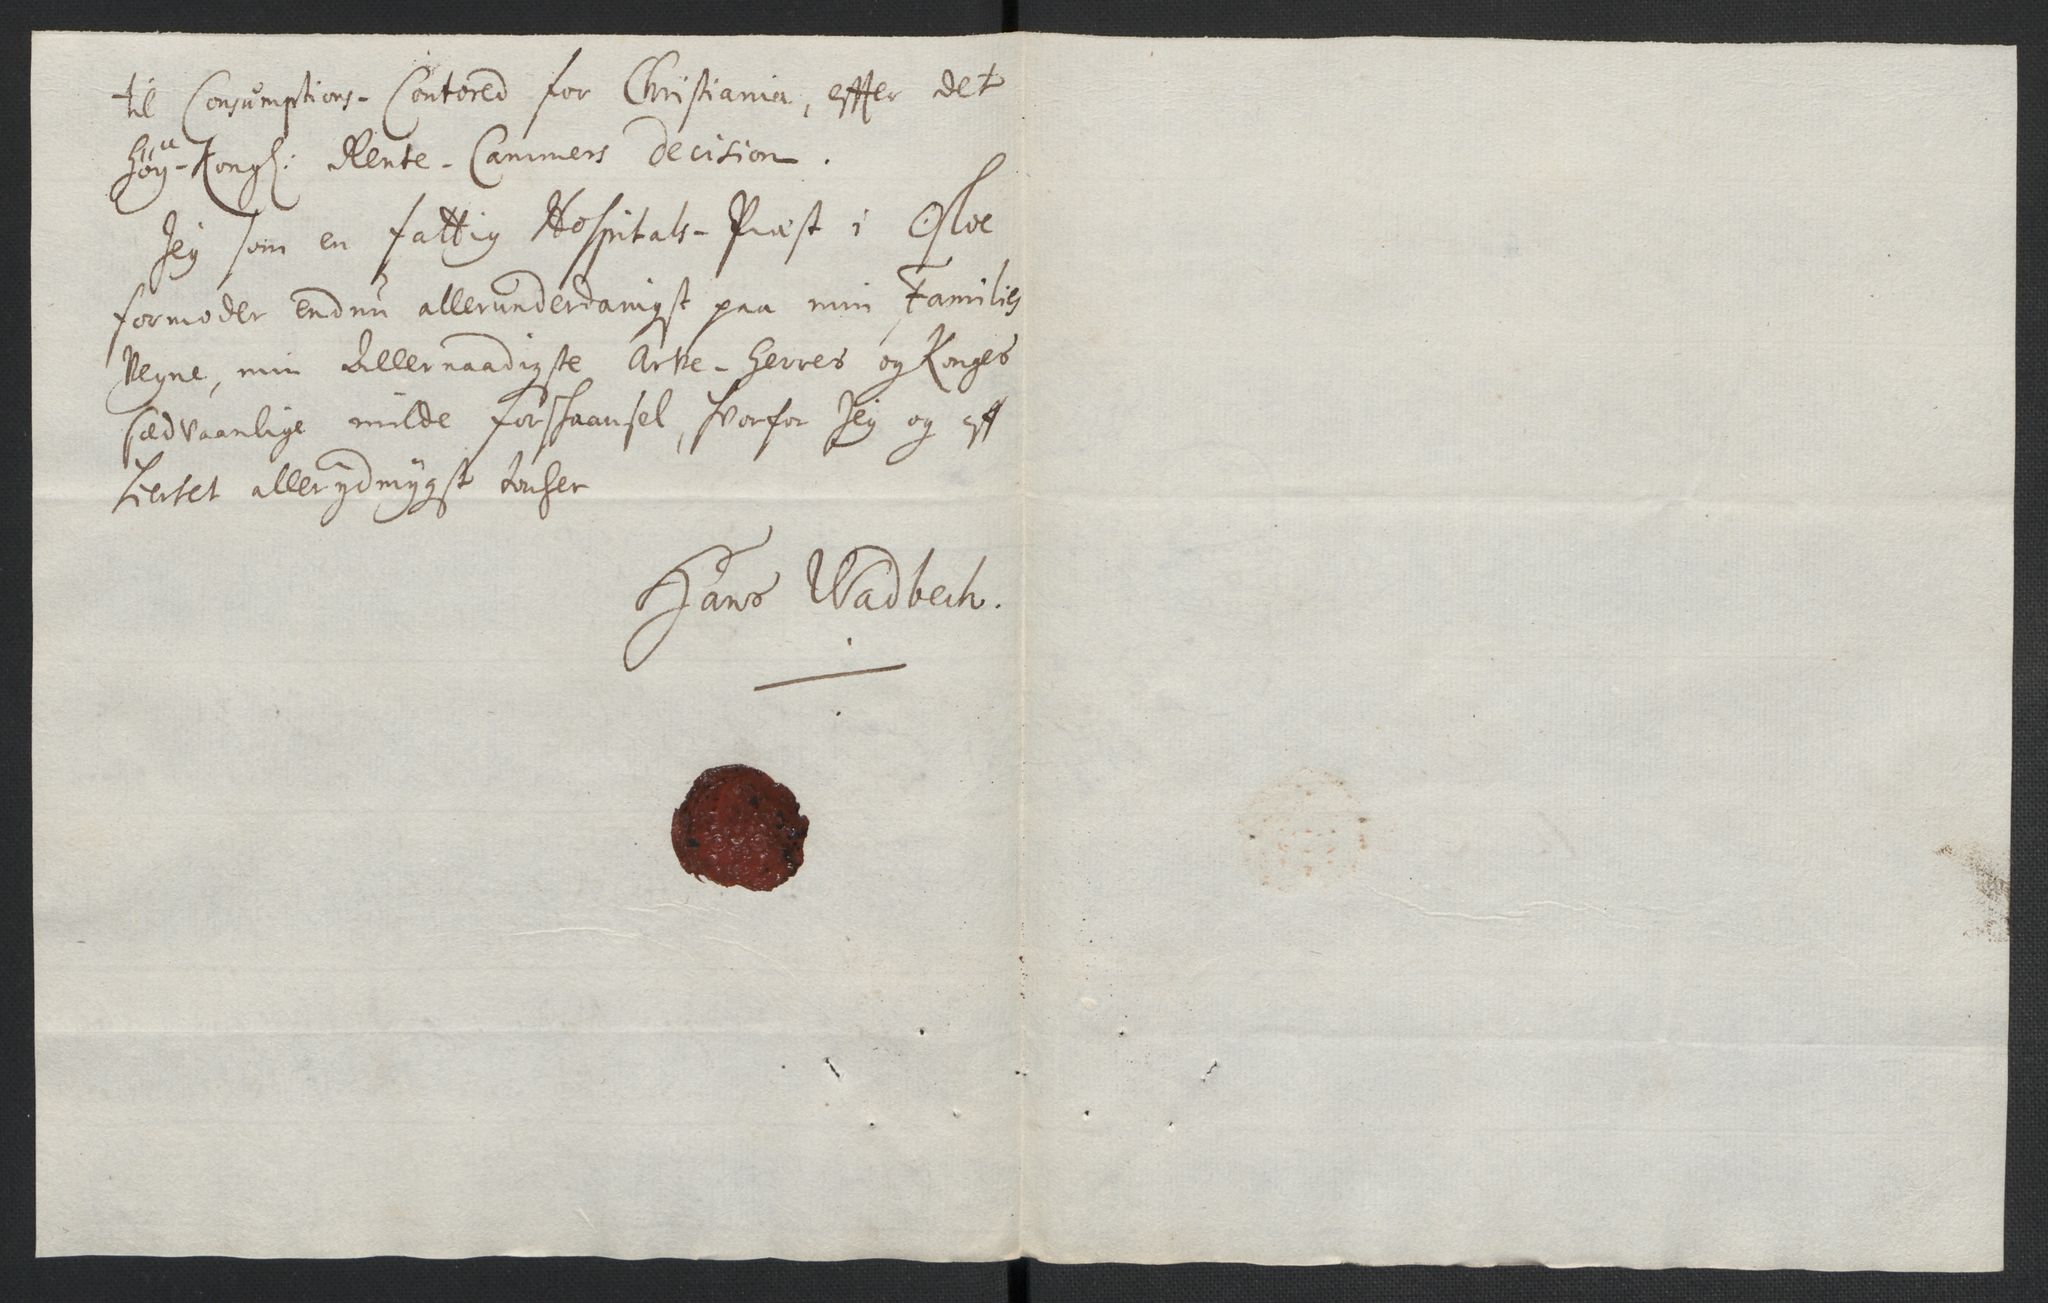 til Consumptions-Contored for Christiania, effter det
Høy-Kongl: Rente-Cammers Decision.
Jeg som en fattig Hospitals-Præst i Osloe
formoder endnu allerunderdanigst paa min Families
Vegne, min Allernaadigste Arve-Herres og Konges
sædvaanlige milde forskaansel, hvorfor Jeg og aff
Hiertet allerydmygst tacher
Hans Wadbech.